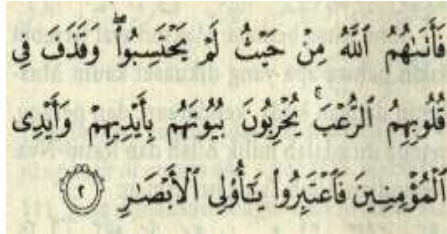 فَأَتَىٰهُمُ ٱللَّهُ مِنْ حَيْثُ لَمْ يَحْتَسِبُوا۟ ۖ وَقَذَفَ فِى
قُلُوبِهِمُ ٱلرُّعْبَ ۚ يُخْرِبُونَ بُيُوتَهُم بِأَيْدِيهِمْ وَأَيْدِى
ٱلْمُؤْمِنِينَ فَٱعْتَبِرُوا۟ يَـٰٓأُو۟لِى ٱلْأَبْصَـٰرِ ٢